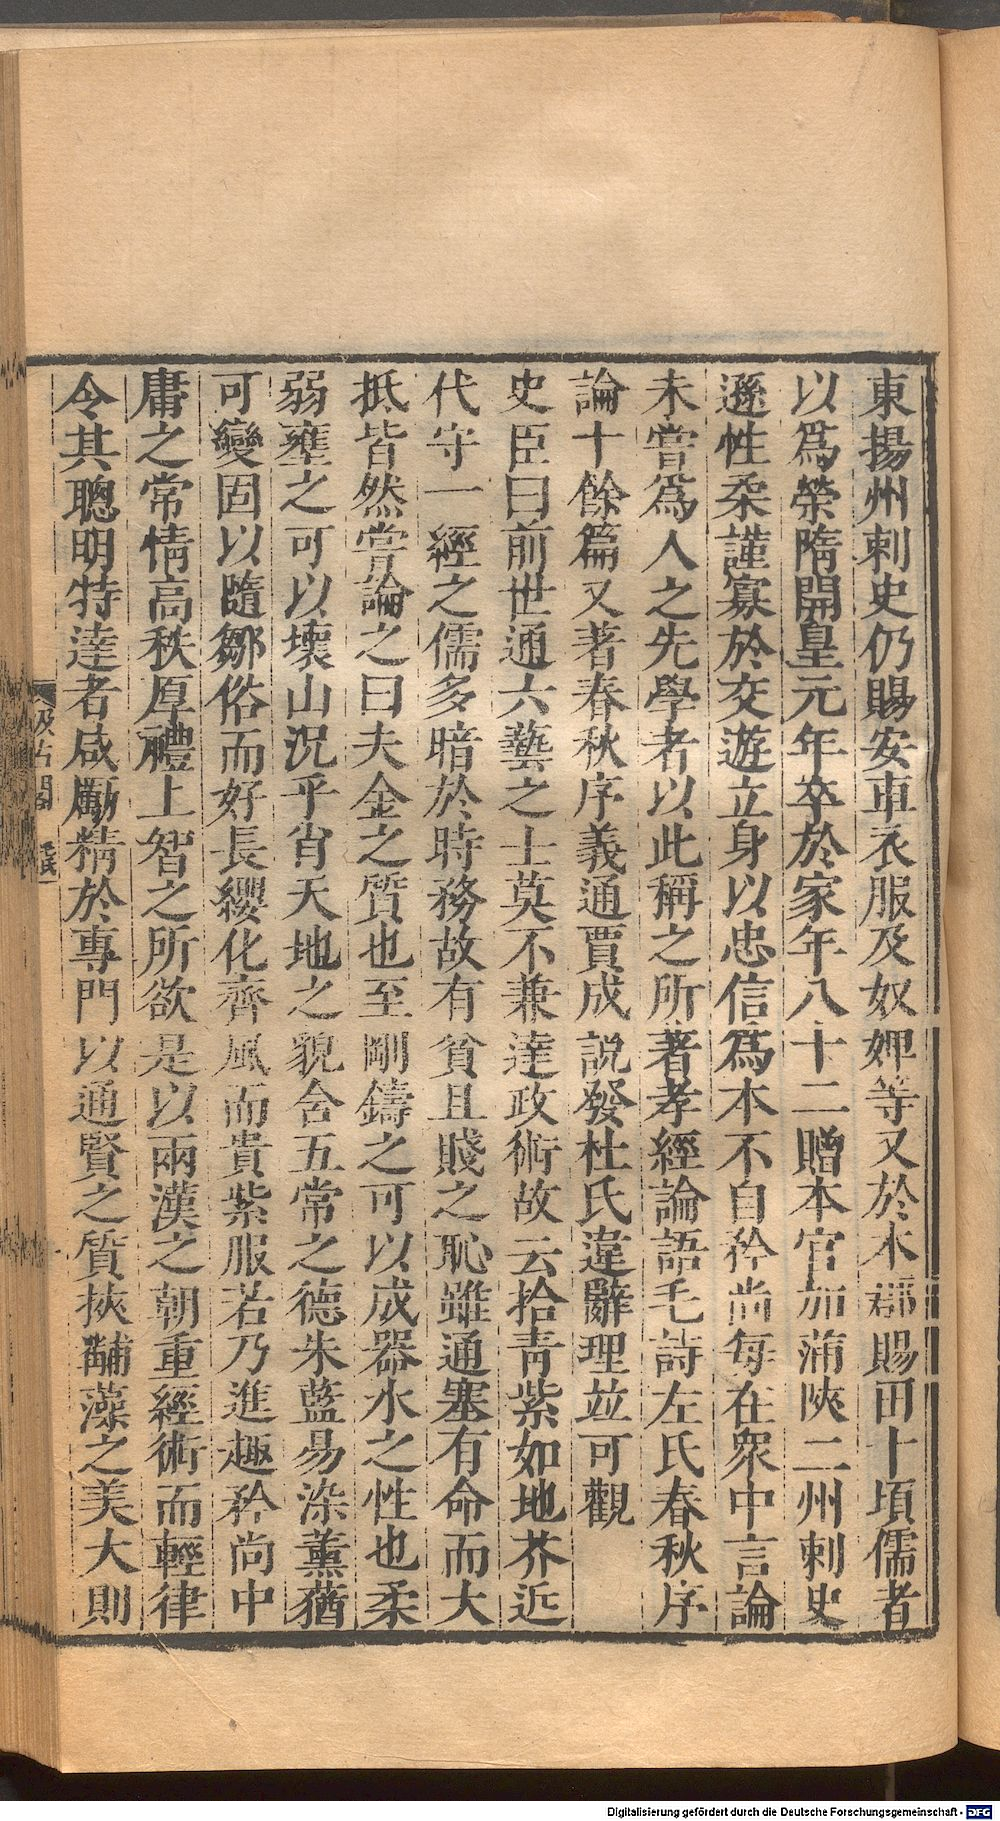 東揚州刺史仍賜安車衣服及奴婢等又於本郡賜田十頃儒者
以爲榮隋開皇元年卒於家年八十二贈本官加蒲陜二州刺史
遜性柔謹寡於交遊立身以忠信爲本不自矜尚每在衆中言論
未嘗爲人之先學者以此稱之所著孝經論語毛詩左氏春秋序
論十餘篇又著春秋序義通賈成說發杜氏違辭理竝可觀
史臣曰前世通六藝之士莫不兼達政術故云拾青紫如地芥近
代守一經之儒多暗於時務故有貧且賤之恥雖通塞有命而大
抵皆然嘗論之曰夫金之質也至剛鑄之可以成器水之性也柔
弱壅之可以壞山況乎肖天地之貌含五常之德朱藍易染薰蕕
可變固以隨鄒俗而好長纓化齊風而貴紫服若乃進趣矜尚中
庸之常情高秩厚禮上智之所欲是以兩漢之朝重經術而輕律
令其聰明特達者咸勵精於專門以通賢之質挾黼藻之美大則
汲古閣 毛氏
Digitalisierung gefördert durch die Deutsche Forschungsgemeinschaft - DFG